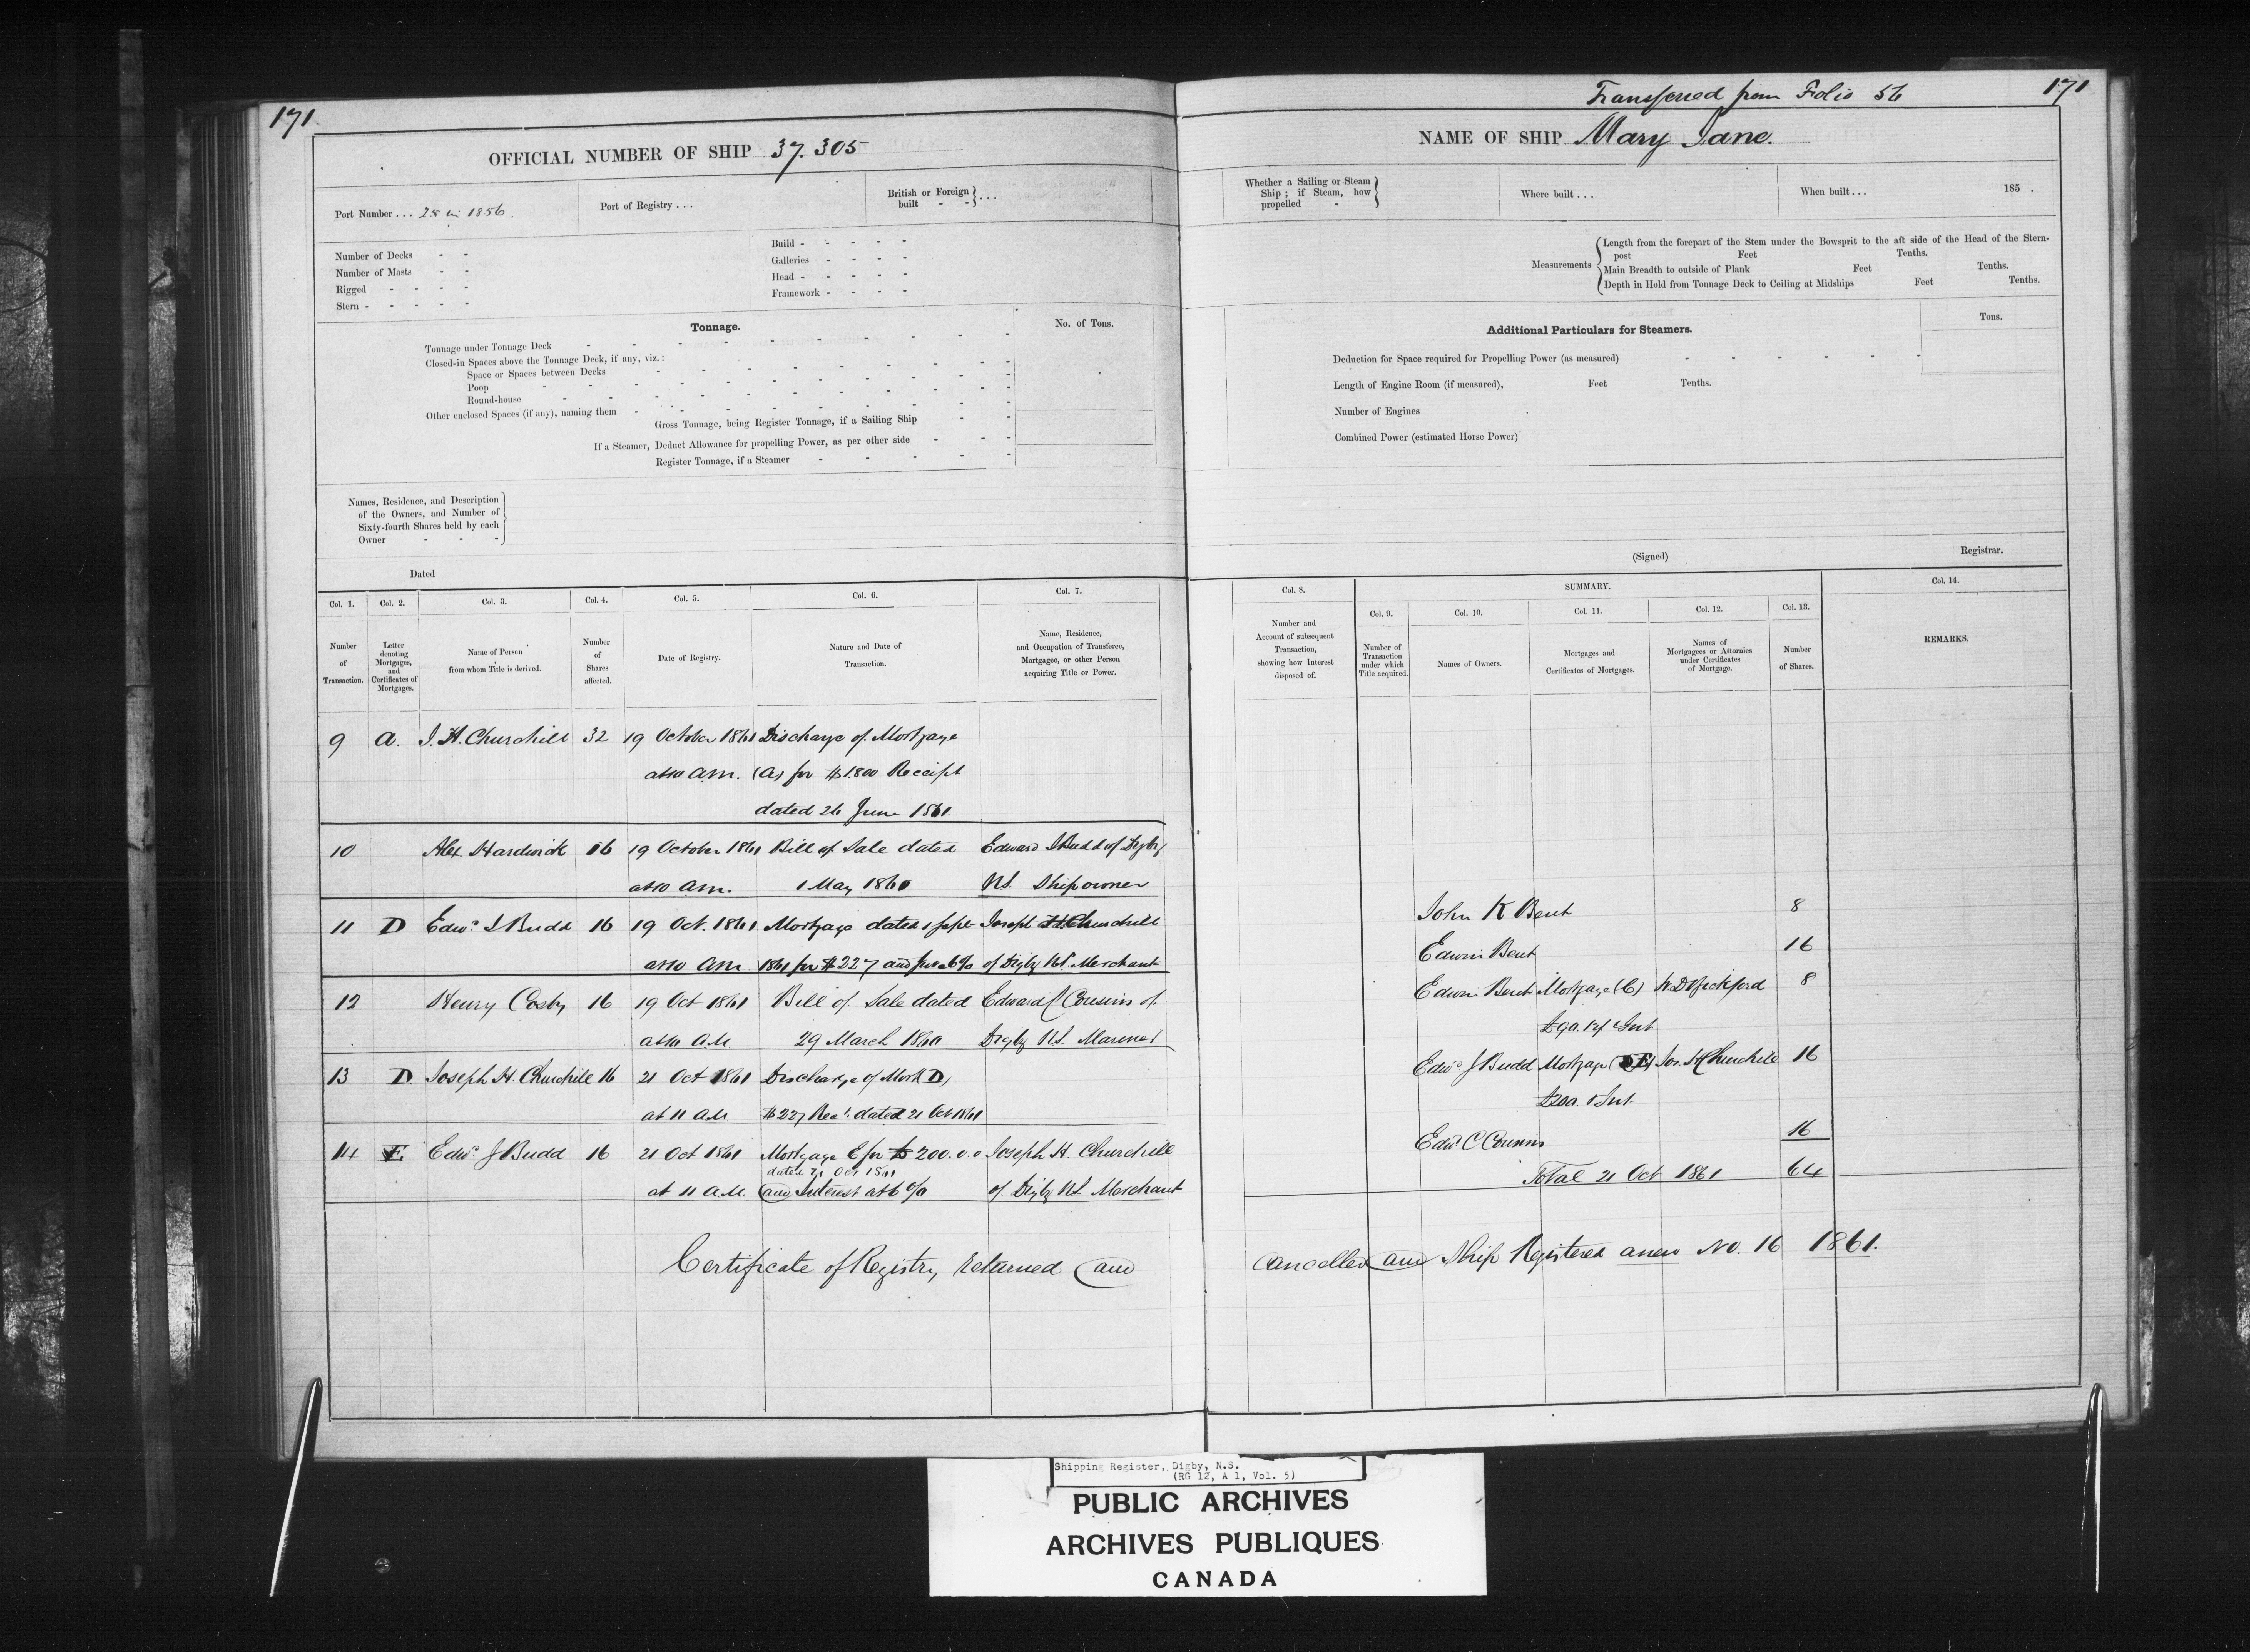 171
OFFICIAL NUMBER OF SHIP 37.305
Port Number ... 25 in 1856.
Port of Registry ...
British or Foreign
built - - } ...
Number of Decks - -
Number of Masts - -
Rigged - - - -
Stern - - - - -
Build - - - - -
Galleries - - - -
Head - - - - -
Framework - - - -
Tonnage.
No. of Tons.
Tonnage under Tonnage Deck
Closed-in Spaces above the Tonnage Deck, if any, viz.:
Space or Spaces between Decks
Poop
Round-house
Other enclosed Spaces (if any), naming them
Gross Tonnage, being Register Tonnage, if a Sailing Ship
If a Steamer, Deduct Allowance for propelling Power, as per other side
Register Tonnage, if a Steamer
Names, Residence, and Description
of the Owners, and Number of
Sixty-fourth Shares held by each
Owner - - -
Dated
Col. 1. Col. 2. Col. 3. Col. 4. Col. 5. Col. 6. Col. 7.
Number of Transaction.
Letter denoting Mortgages, and Certificates of Mortgages.
Name of Person from whom Title is derived.
Number of Shares affected.
Date of Registry.
Nature and Date of Transaction.
Name, Residence, and Occupation of Transferee, Mortgagee, or other Person acquiring Title or Power.
9 A. J. H. Churchill 32 19 October 1861 Discharge of Mortgage
at 10 A.M. (A) for $1800 Receipt
dated 26 June 1861
10 Alex Hardwick 16 19 October 1861 Bill of Sale dated Edward J Budd of Digby
at 10 Am. 1 May 1860 NS. Shipowner
11 D Edwd J Budd 16 19 Oct. 1861 Mortgage dated 1 Sept Joseph H Churchill
at 10 Am 1861 for $227 and Int at 6% of Digby NS. Merchant
12 Henry Cosby 16 19 Oct 1861 Bill of Sale dated Edward C Cousins of
at 10 A.M 29 March 1860 Digby NS. Mariner
13 D. Joseph H. Churchill 16 21 Oct 1861 Discharge of Mort D,
at 11 AM $227 Rect. dated 21 Oct 1861
14 E. Edwd J Budd 16 21 Oct 1861 Mortgage E for £ 200.0.0 Joseph H. Churchill
dated 21 Oct 1861
at 11 A.M. and Interest at 6 % of Digby NS. Merchant
Certificate of Registry returned and
Transferred from Folio 56
171
NAME OF SHIP Mary Jane.
Whether a Sailing or Steam
Ship; if Steam, how
propelled -
Where built ...
When built ... 185 .
Measurements
Length from the forepart of the Stem under the Bowsprit to the aft side of the Head of the Stern-
post Feet Tenths.
Main Breadth to outside of Plank Feet Tenths.
Depth in Hold from Tonnage Deck to Ceiling at Midships Feet Tenths.
Additional Particulars for Steamers.
Tons.
Deduction for Space required for Propelling Power (as measured)
Length of Engine Room (if measured), Feet Tenths.
Number of Engines
Combined Power (estimated Horse Power)
(Signed) Registrar.
Col. 8. SUMMARY. Col. 14.
Col. 9. Col. 10. Col. 11. Col. 12. Col. 13.
Number and Account of subsequent Transaction, showing how Interest disposed of.
Number of Transaction under which Title acquired.
Names of Owners.
Mortgages and Certificates of Mortgages.
Names of Mortgagees or Attornies under Certificates of Mortgage.
Number of Shares.
REMARKS.
John K Bent 8
Edwin Bent 16
Edwin Bent Mortgage (C) 8
Edwd J Budd Mortgage (E) Jos. H Churchill 16
£200. & Int.
Edwd. C Cousins 16
Total 21 Oct 1861 64
Cancelled and Ship Registered anew No. 16 1861.
Shipping Register, Digby, N.S.
(RG 12, A 1, Vol. 5)
PUBLIC ARCHIVES
ARCHIVES PUBLIQUES
CANADA